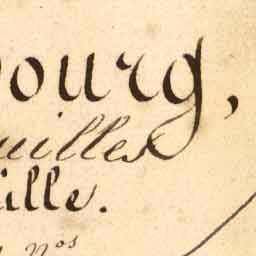 bourg,
uilles
ille.
nos